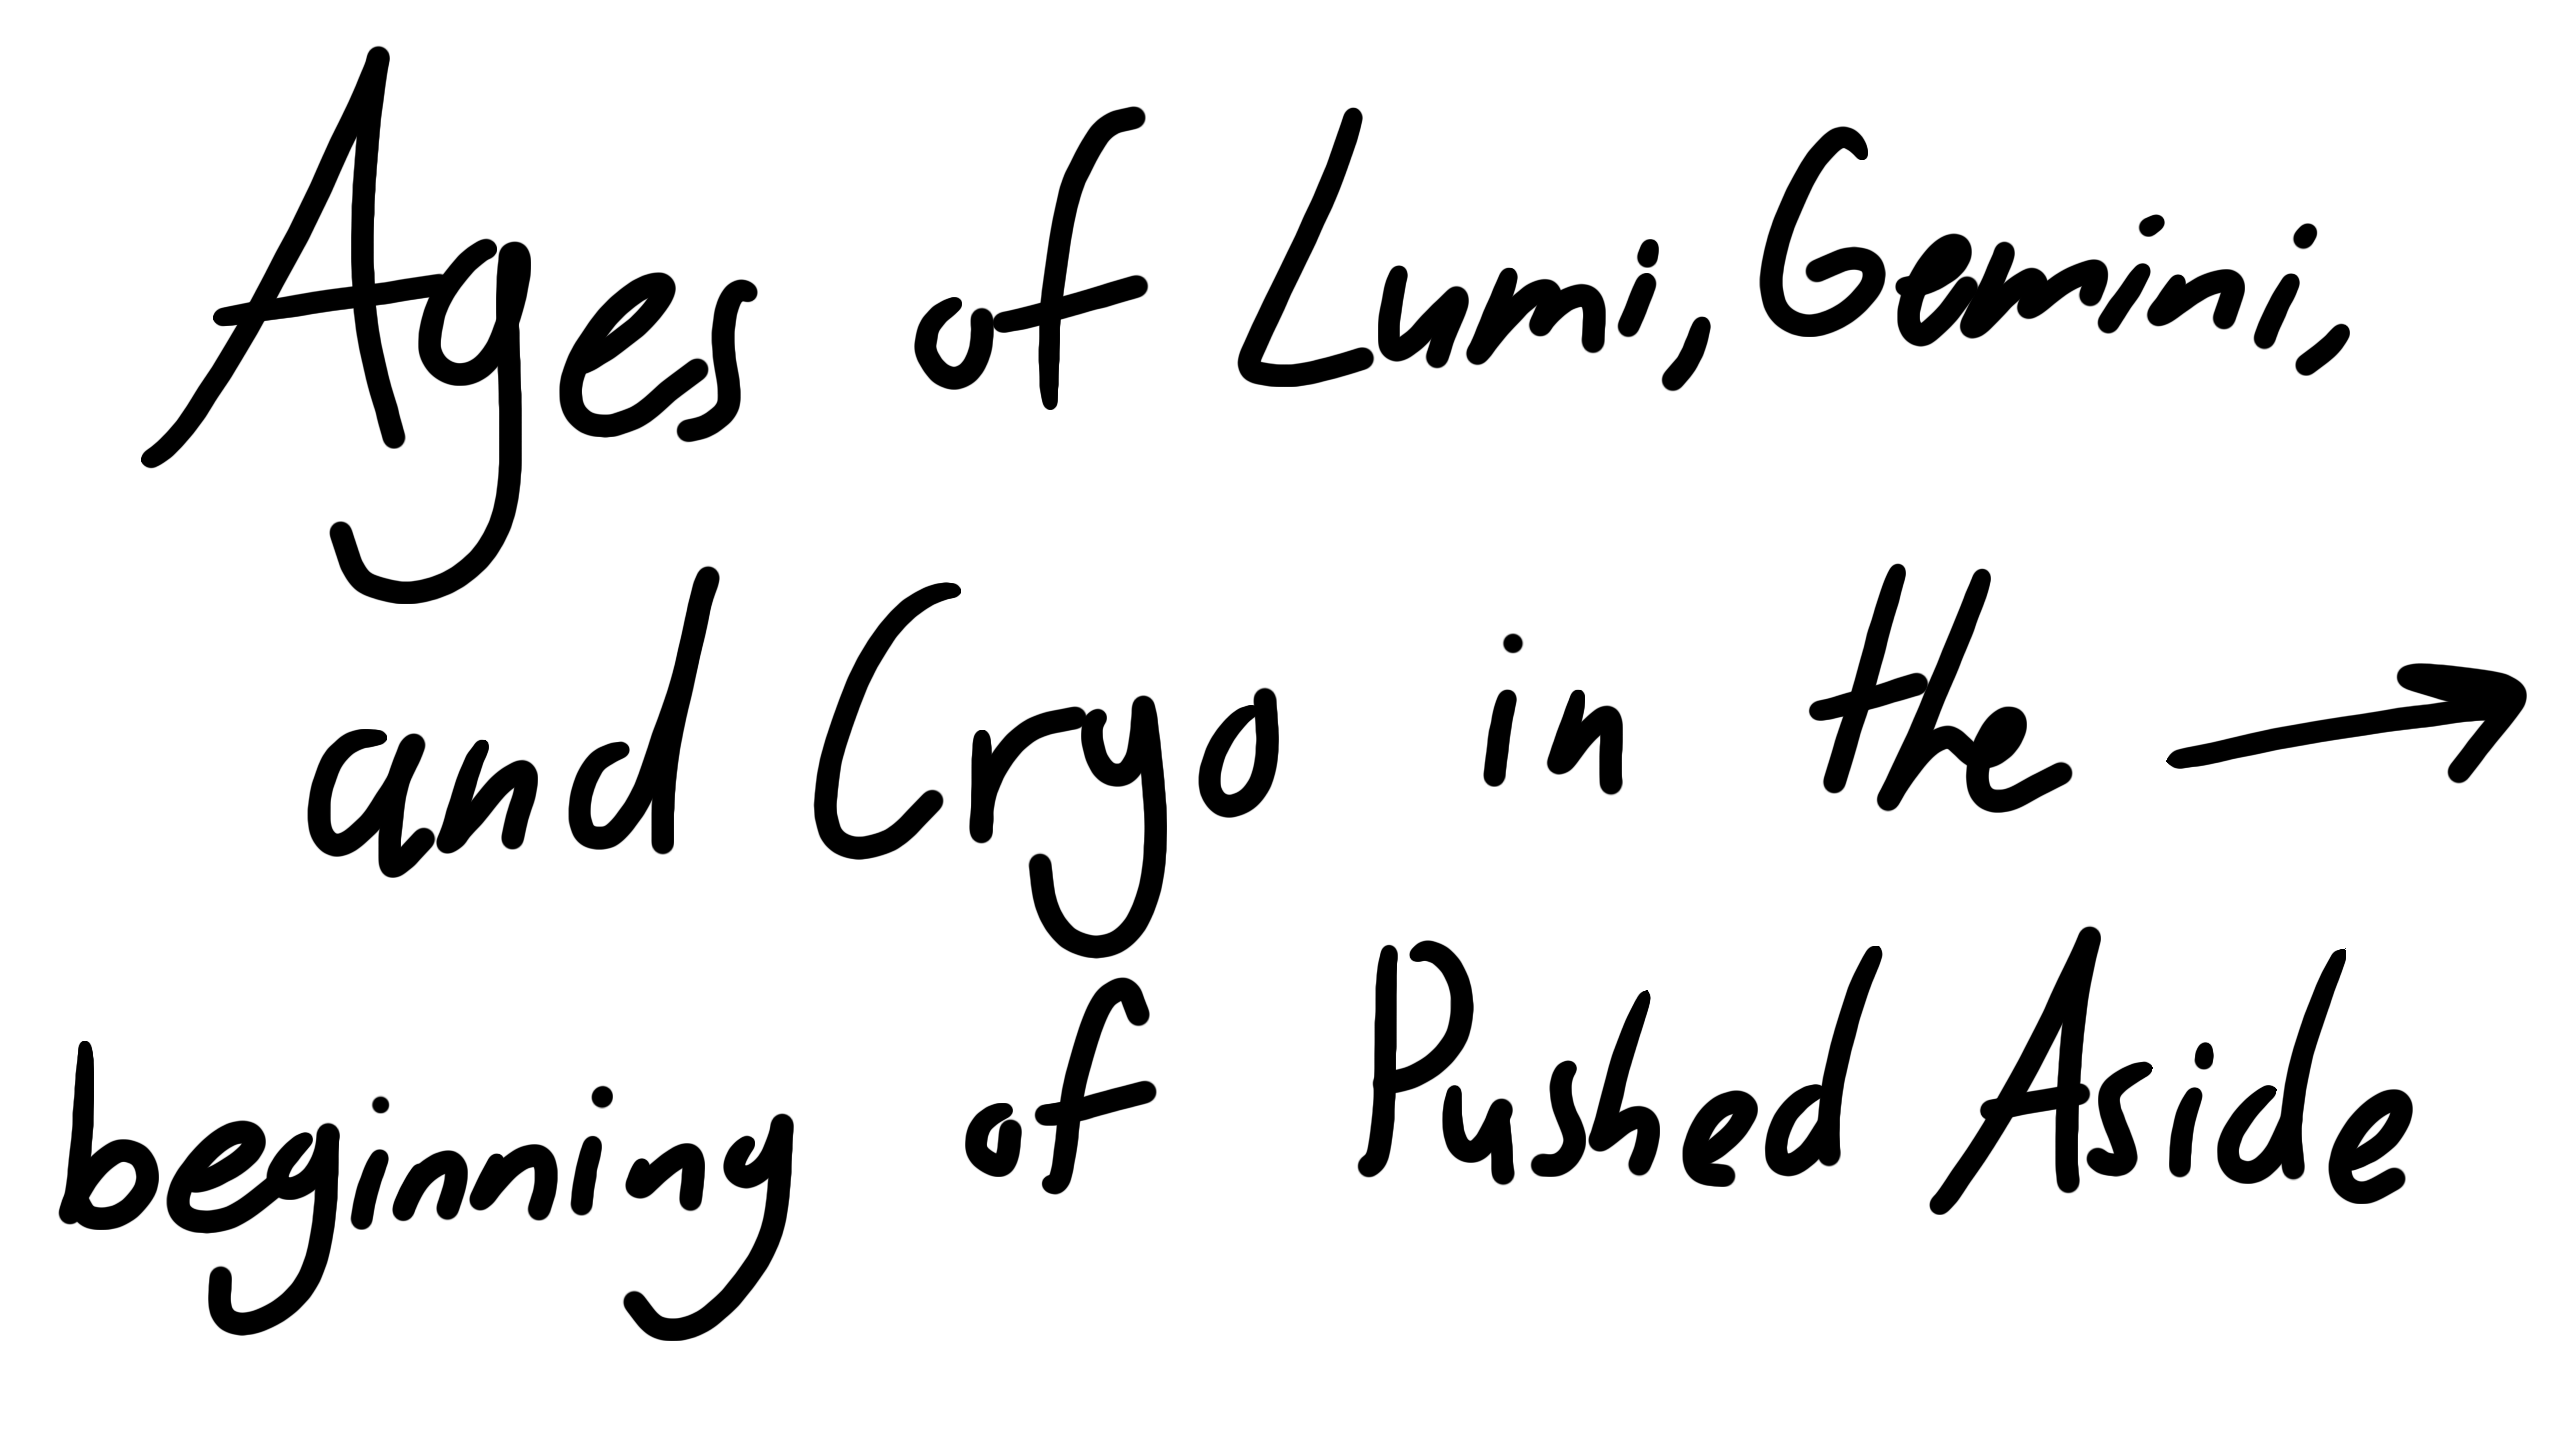 Ages of Lumi, Gemini,
and Cryo in the →
beginning of Pushed Aside